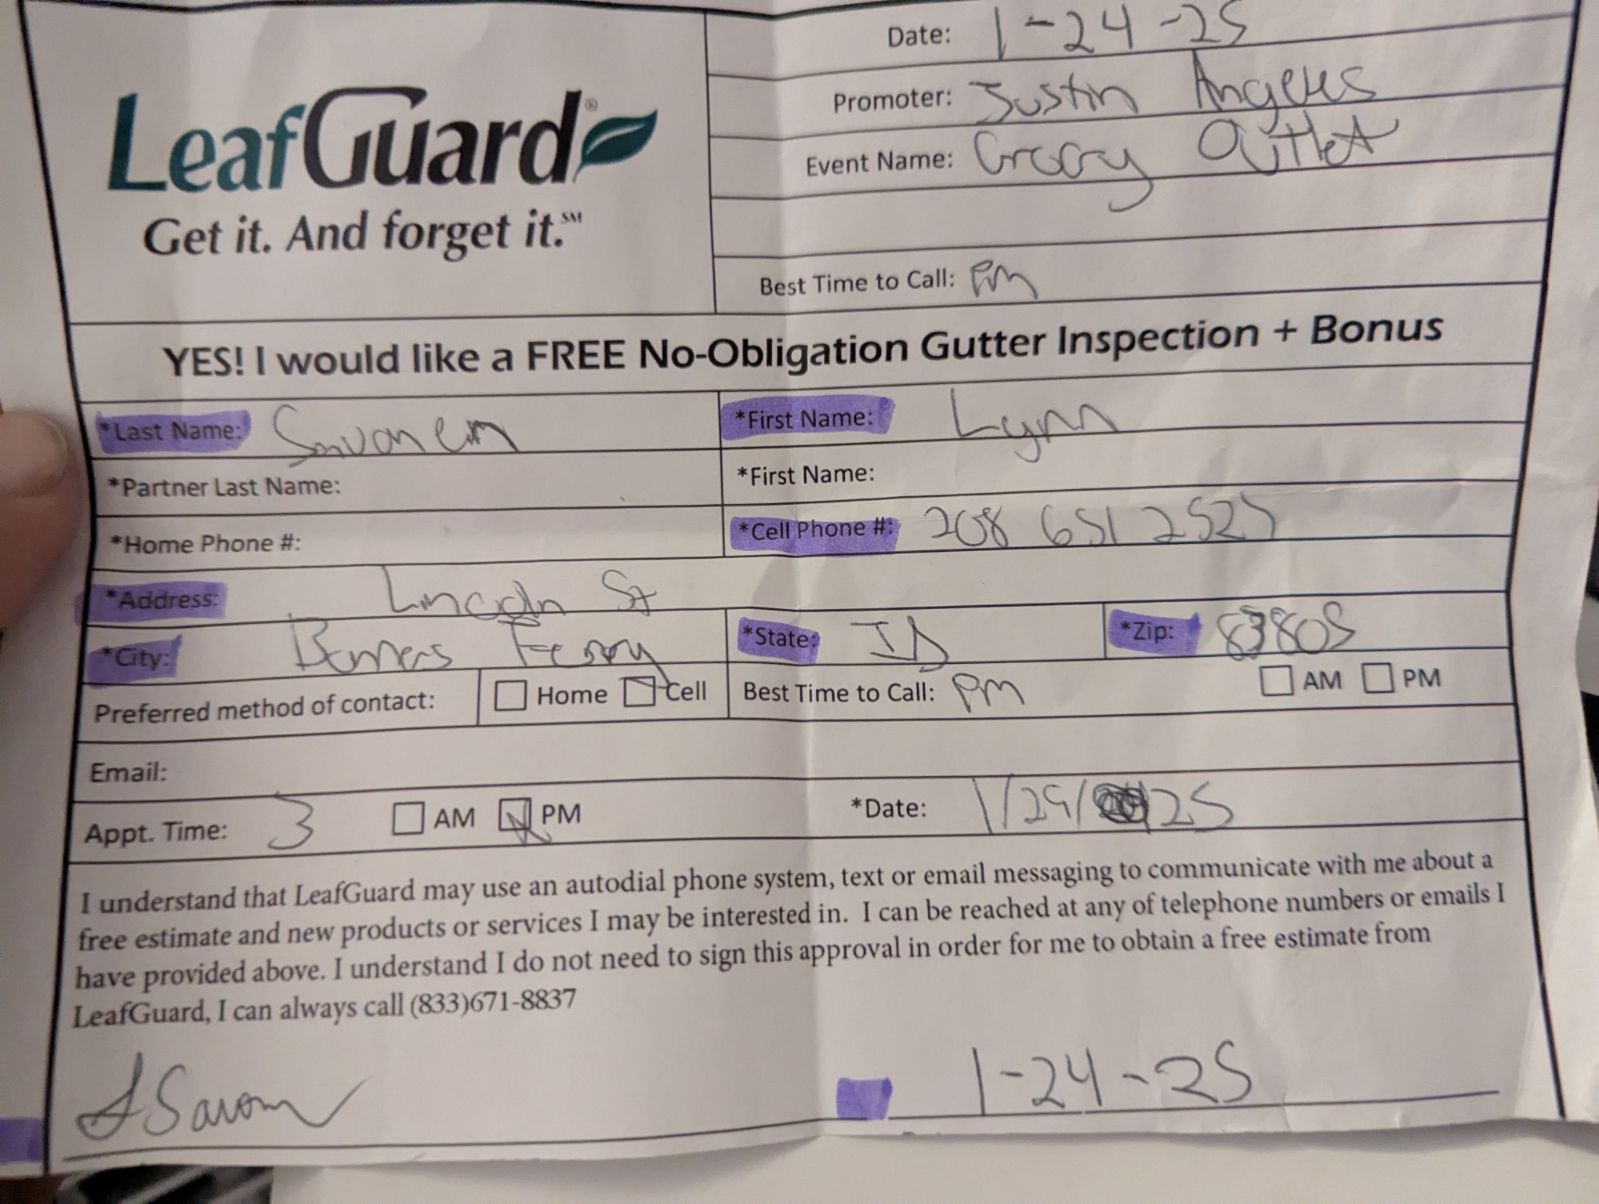 Date: 1-24-25
LeafGuard®
Get it. And forget it.℠
Promoter: Justin Angeles
Event Name: Grocry Outlet
Best Time to Call: PM
YES! I would like a FREE No-Obligation Gutter Inspection + Bonus
*Last Name: Savonen *First Name: Lynn
*Partner Last Name: *First Name:
*Home Phone #: *Cell Phone #: 208 651 2525
*Address: Lincoln St
*City: Bonners Ferry *State: ID *Zip: 83805
Preferred method of contact: Home Cell Best Time to Call: PM AM PM
Email:
Appt. Time: 3 AM PM *Date: 1/29/25
I understand that LeafGuard may use an autodial phone system, text or email messaging to communicate with me about a
free estimate and new products or services I may be interested in. I can be reached at any of telephone numbers or emails I
have provided above. I understand I do not need to sign this approval in order for me to obtain a free estimate from
LeafGuard, I can always call (833)671-8837
1-24-25